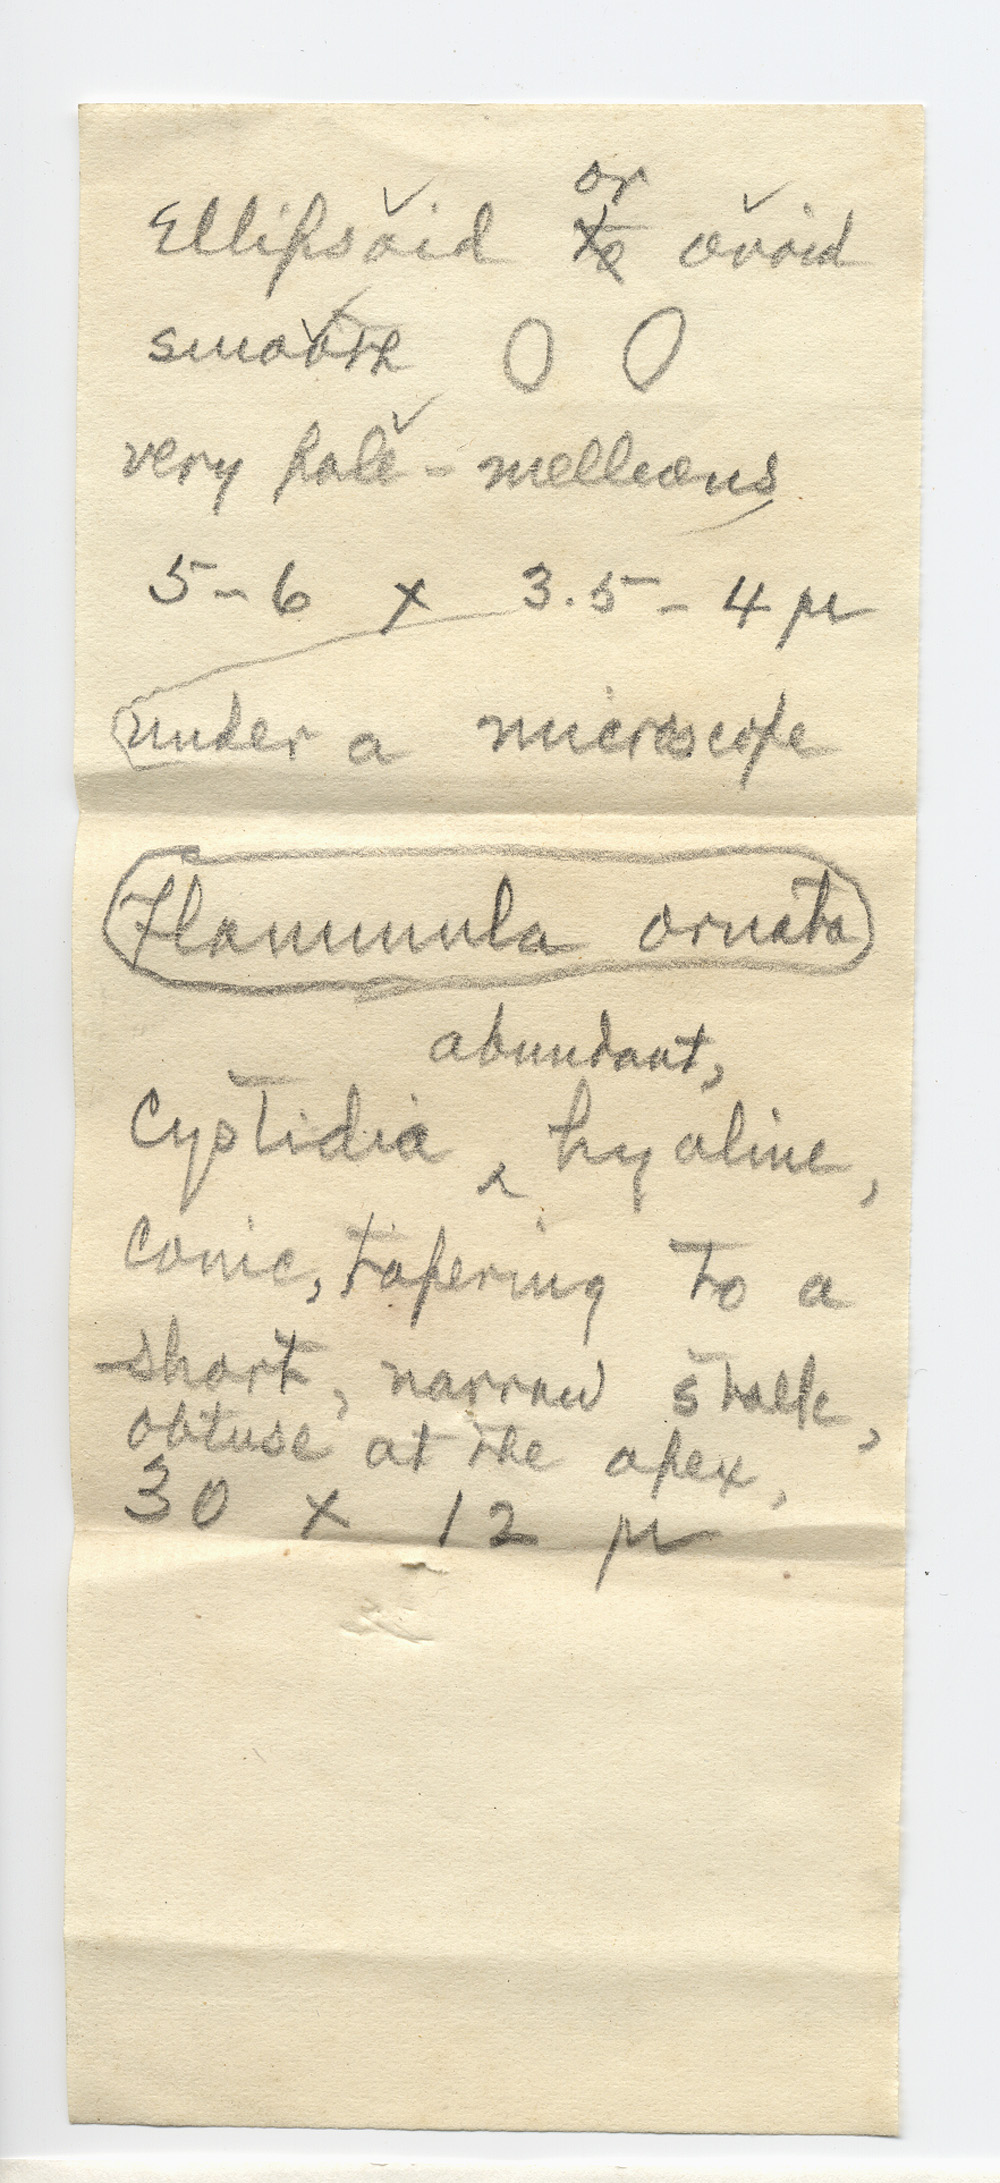 or
Ellipsoid to ovoid
smooth
very pale-melleous
5-6 x 3.5-4 μ
under a microscope
Flammula ornata
abundant,
Cystidia ‸ hyaline,
conic, tapering to a
short, narrow stalk,
obtuse at the apex,
30 x 12 μ